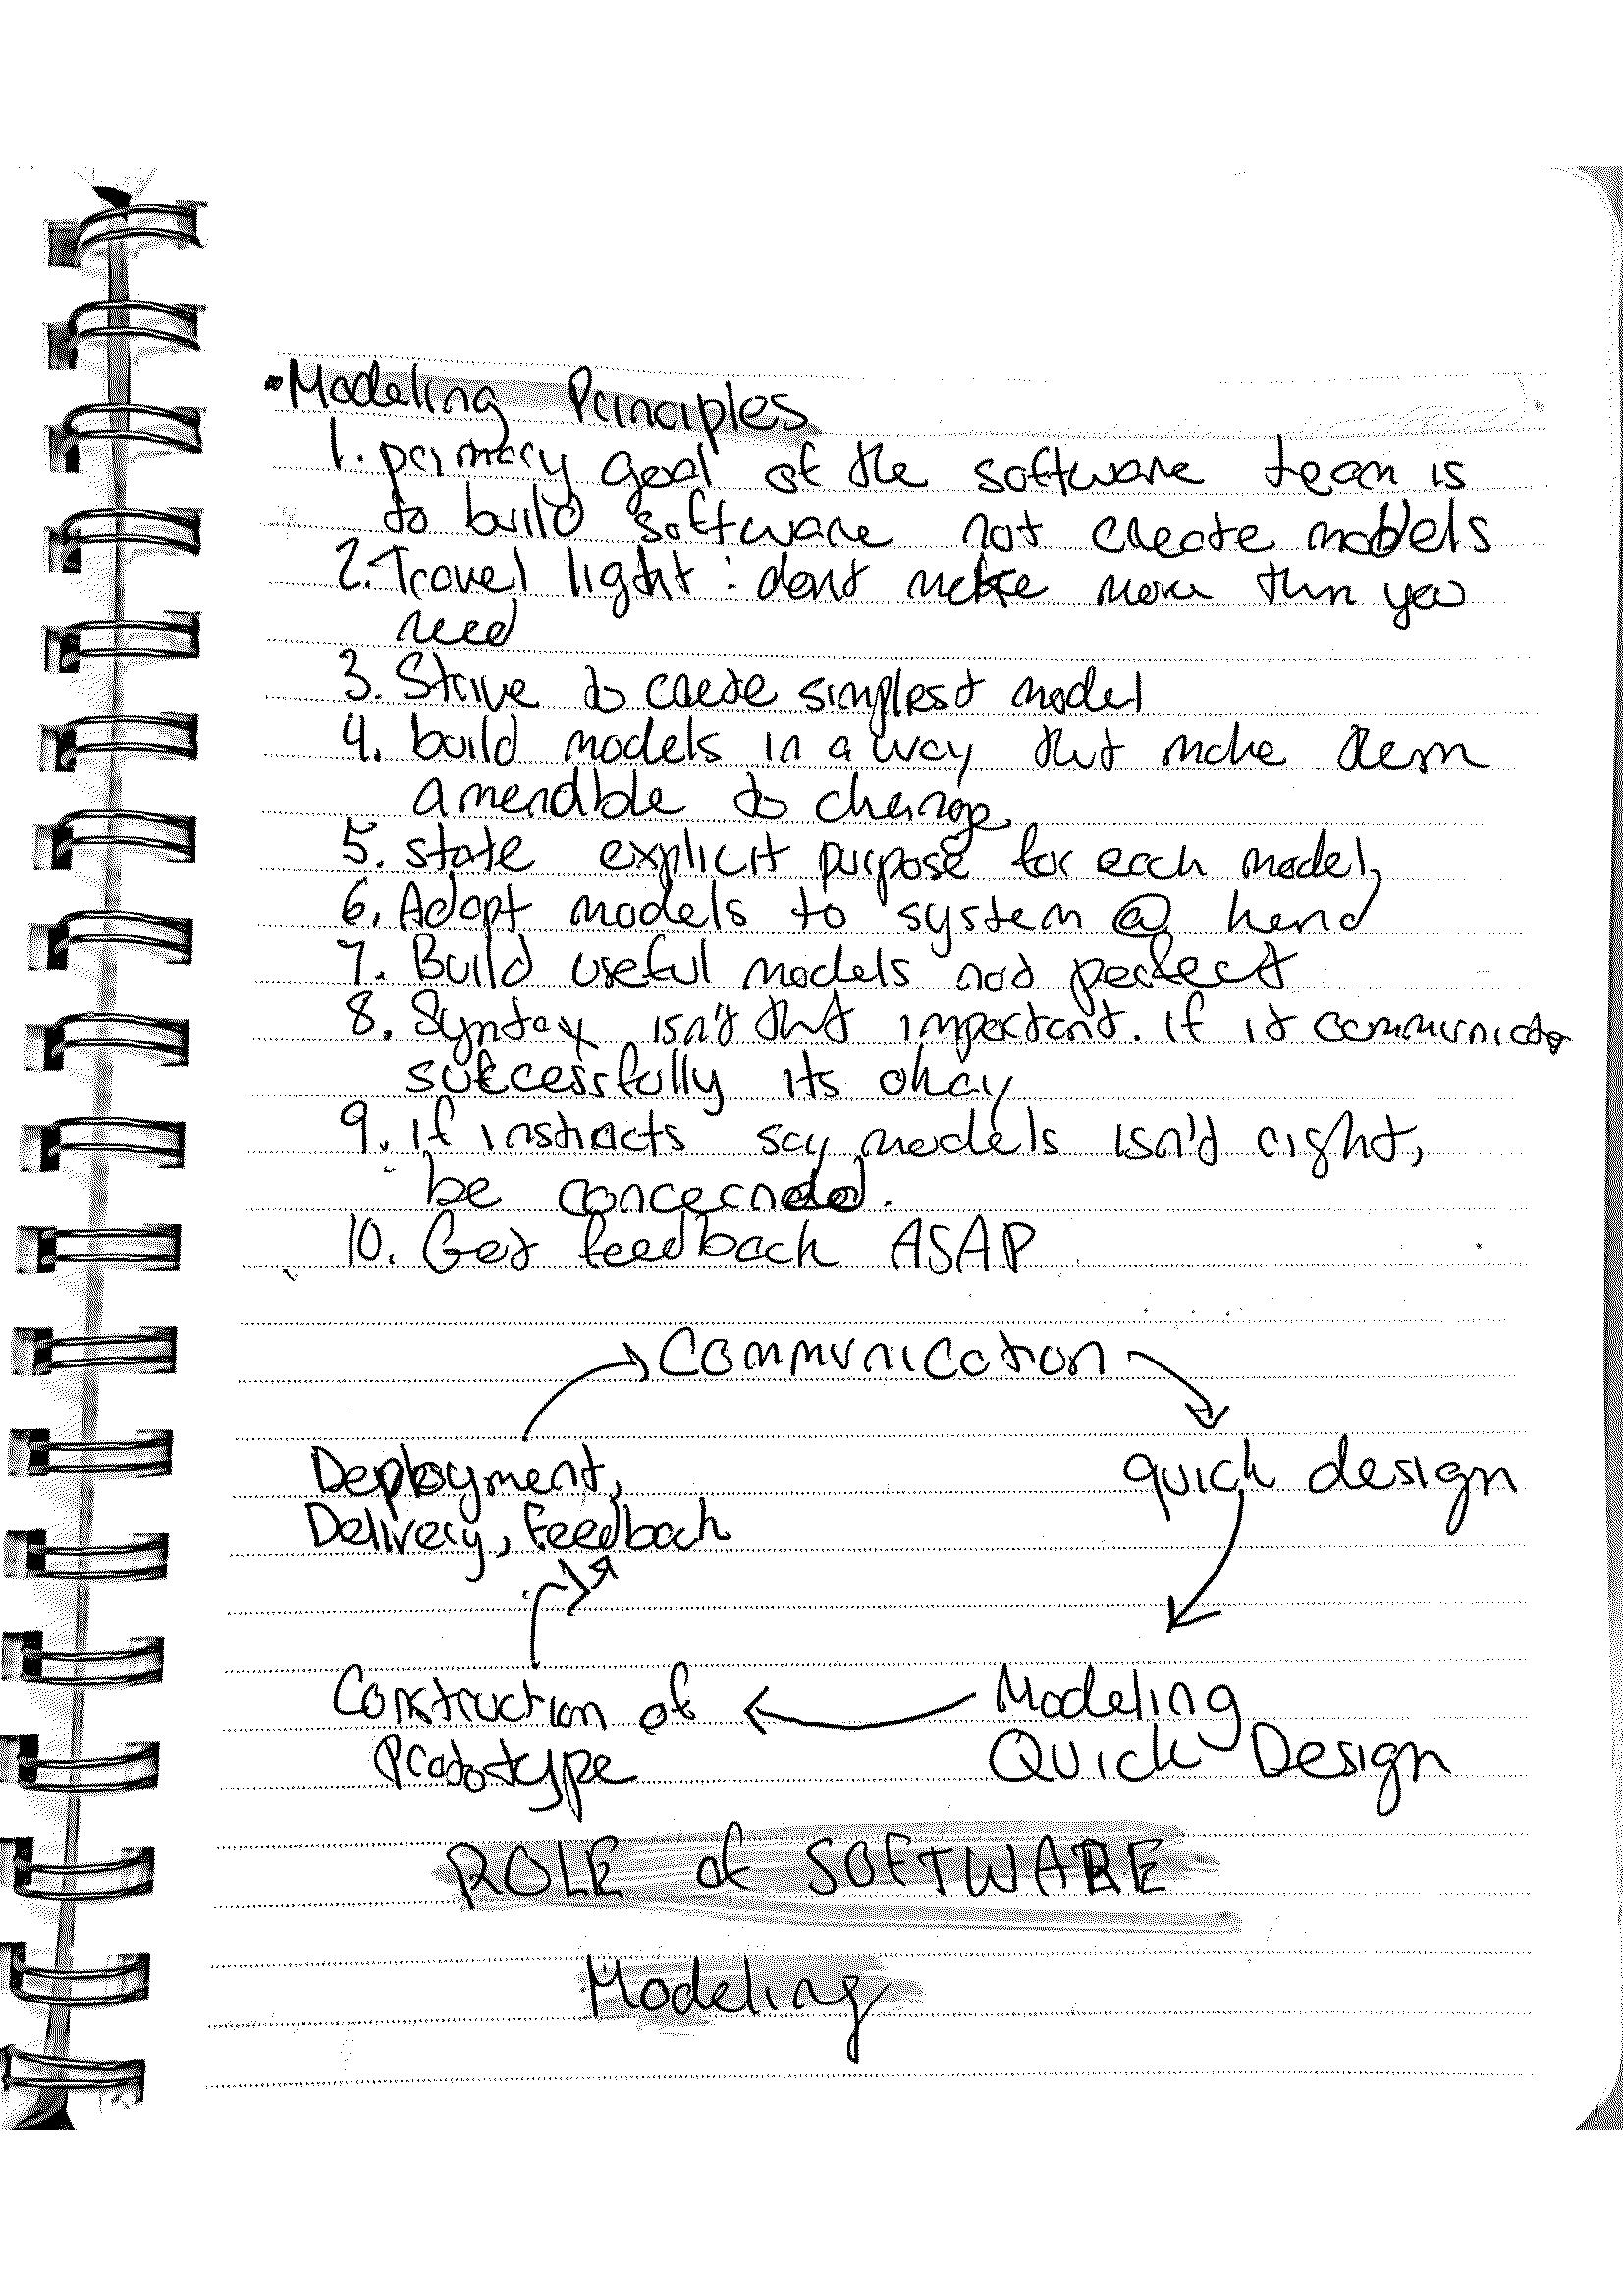 Modeling Principles
1. primary goal of the software team is
to build software not create models
2. Travel light : dont make more than you
need
3. Strive to create simplest model
4. build models in a way that make them
amendble to change
5. state explicit purpose for each model
6. Adapt models to system @ hand
7. Build useful models not perfect
8. Syntax isn't that important. if it communicate
successfully its okay
9. if instincts say models isn't right,
be concerned.
10. Get feedback ASAP
Communication
Deployment,
Delivery, feedback
quick design
Construction of
Prototype
Modeling
Quick Design
ROLE of SOFTWARE
Modeling